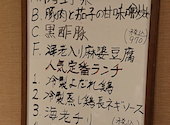 B. 豚肉と茄子の甘味噌炒
C. 黒酢豚
F. 海老入り麻婆豆腐
人気定番ランチ
1. 冷製よだれ鶏
2. 冷製蒸し鶏長ネギソース
3. 海老チリ